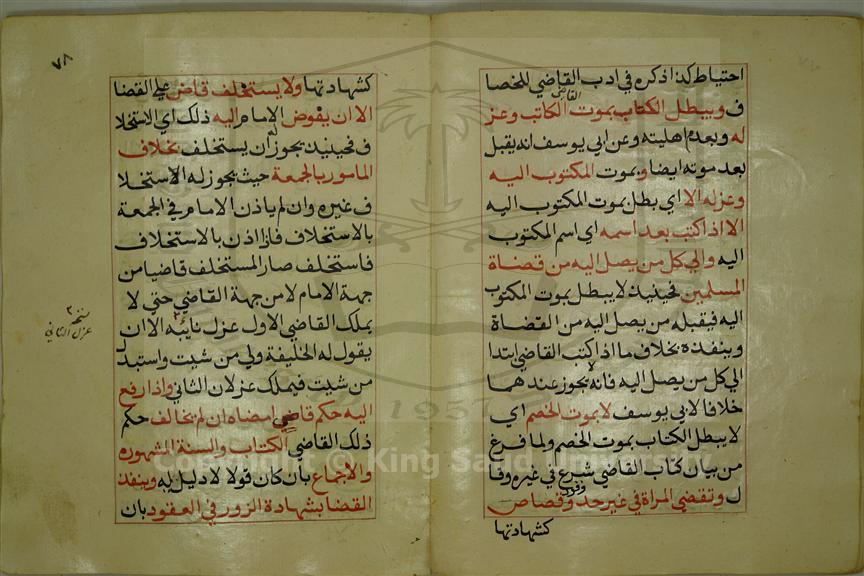 احتياط كذا ذكره في ادب القاضي للخصا
ف ويبطل الكتاب بموت الكاتب وعز
القاضي
له وبعدم اهليته وعن ابي يوسف انه يقبل
بعد موته ايضا وبموت المكتوب اليه
وعزله الا اي بطل بموت المكتوب اليه
الا اذا كتب بعد اسمه اي اسم المكتوب
اليه والي كل من يصل اليه من قضاة
المسلمين فحينيذ لا يبطل بموت المكتوب
اليه فيقبله من يصل اليه من القضاة
وينفذه بخلاف ما اذا كتب القاضي ابتدا
الي كل من يصل اليه فانه لا يجوز عندهما
خلافا لابي يوسف لا بموت الخصم اي
لا يبطل الكتاب بموت الخصم ولما فرغ
من بيان كتاب القاضي شرع في غيره وقا
ل وتقضي المراة في غير حد وقصاص
وقود
كشهادتها
٧٨
كشهادتها ولا يستخلف قاض علي القضا
الا ان يفوض الامام اليه ذلك اي الاستخلا
ف فحينيذ يجوز له ان يستخلف بخلاف
المامور بالجمعة حيث يجوز له الاستخلا
ف غيره وان لم ياذن الامام في الجمعة
بالاستخلاف فاذا اذن بالاستخلاف
فاستخلف صار المستخلف قاضيا من
جهة الامام لا من جهة القاضي حتي لا
يملك القاضي الاول عزل نايبه الا ان
يقول له الخليفة ولي من شيت واستبدل
من شيت فيملك عزلان الثاني واذا رفع
اليه حكم قاضي امضاه ان لم يخالف حكم
ذلك القاضي الكتاب والسنة المشهوره
والاجماع بان كان قولا لا دليل له وينفذ
القضا بشهادة الزور في العقود بان
نسخه
عزل الثاني
Copyright © King Saud University
1957